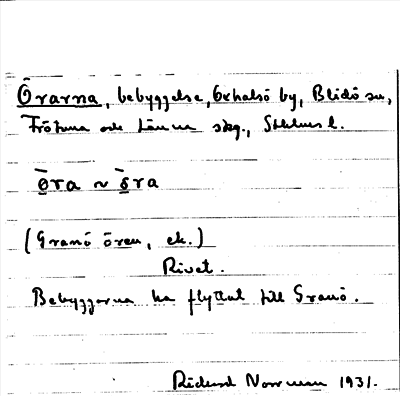 Örarna, bebyggelse, Oxhalsö by, Blidö sn,
Frötuna och Länna skg., Sthlms l.
ø̱̄ra ~ ō̱ra
(Granö ören, ek.)
Rivet.
Bebyggarna ha flyttat till Granö.
Rickard Norrman 1931.